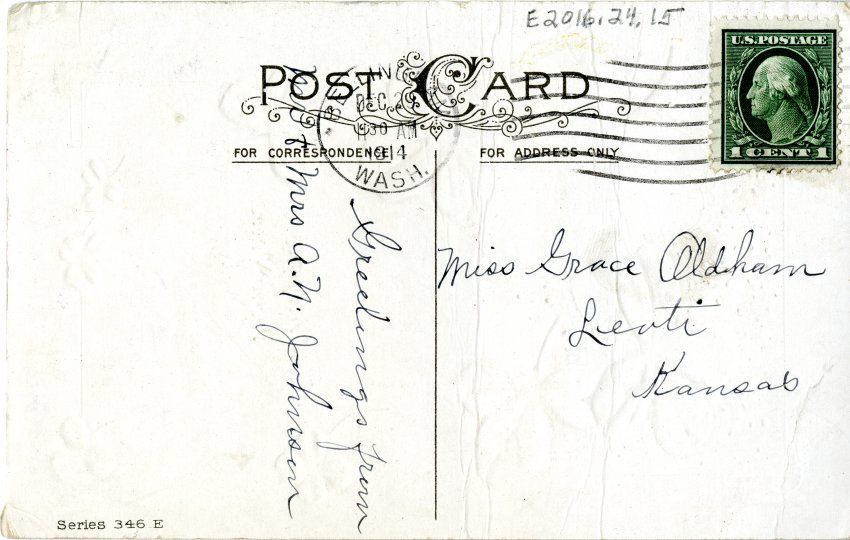 E2016.24.15
POST CARD
U.S. POSTAGE
1 CENT 1
DEC 2
30 AM
1914
WASH.
FOR CORRESPONDENCE
FOR ADDRESS ONLY
Greetings from
Mr & Mrs A.N. Johnson
Miss Grace Oldham
Leoti
Kansas
Series 346 E